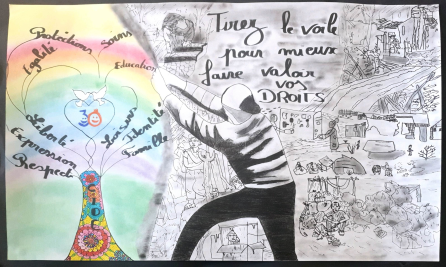 Protection
Soins
Égalité
Education
30
Liberté
Expression
Respect
Loisirs
Identité
Famille
Tirez le voile
pour mieux
faire valoir
vos
DROITS